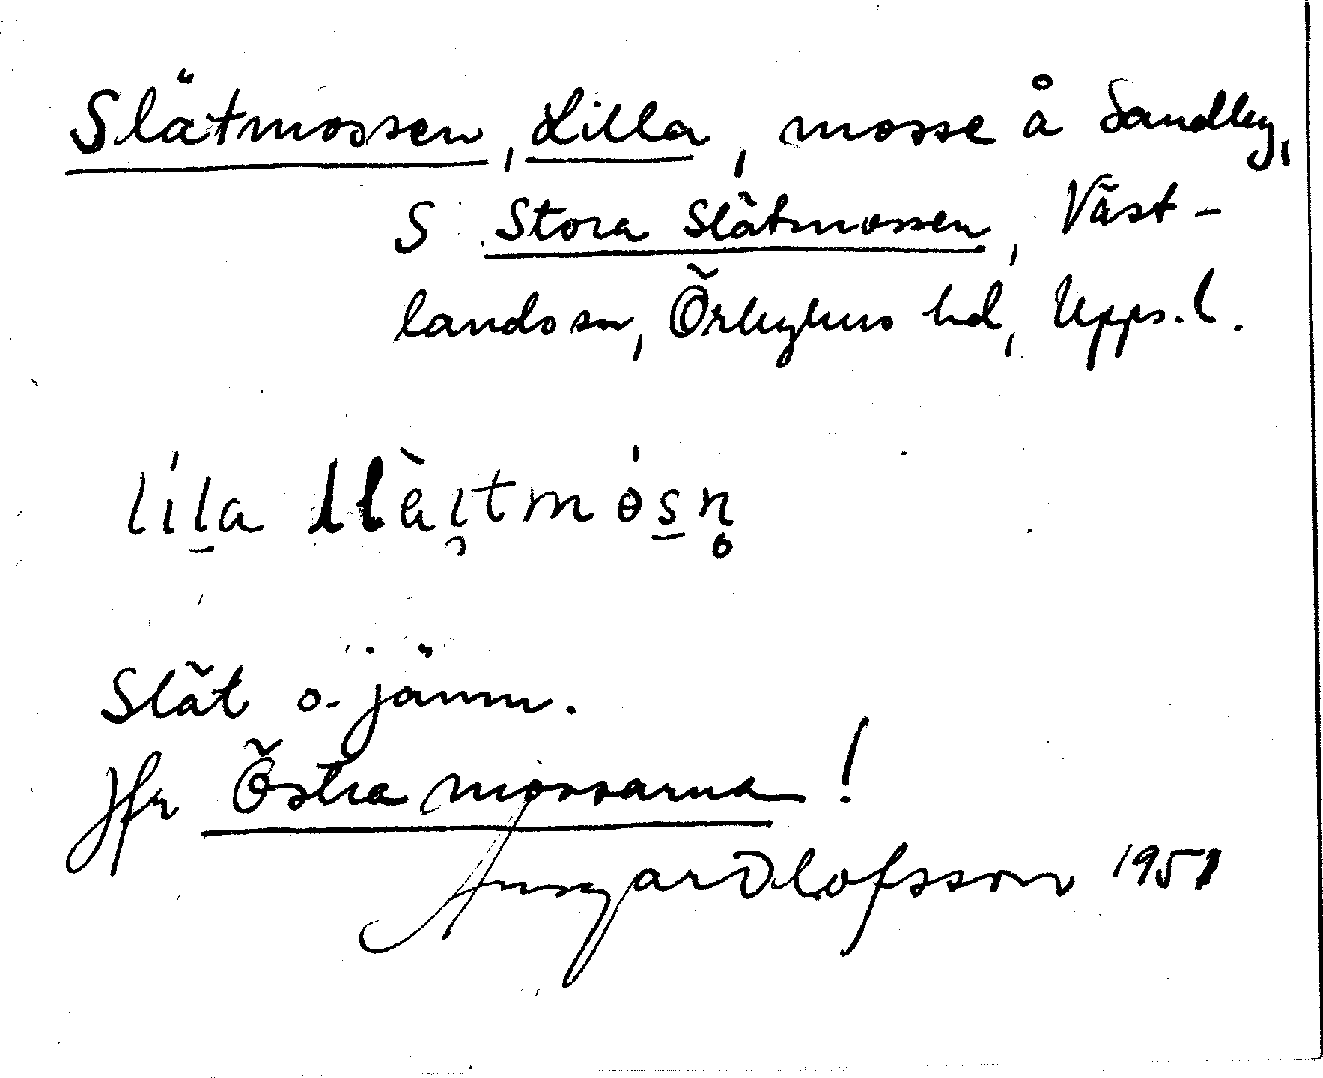 Slätmossen, Lilla, mosse å Sandby,
S Stora Slätmossen, Väst-
lands sn, Örbyhus hd, Upps. l.
Slät o. jämn.
Jfr Östra mossarna!
Ansgar Olofsson 1951